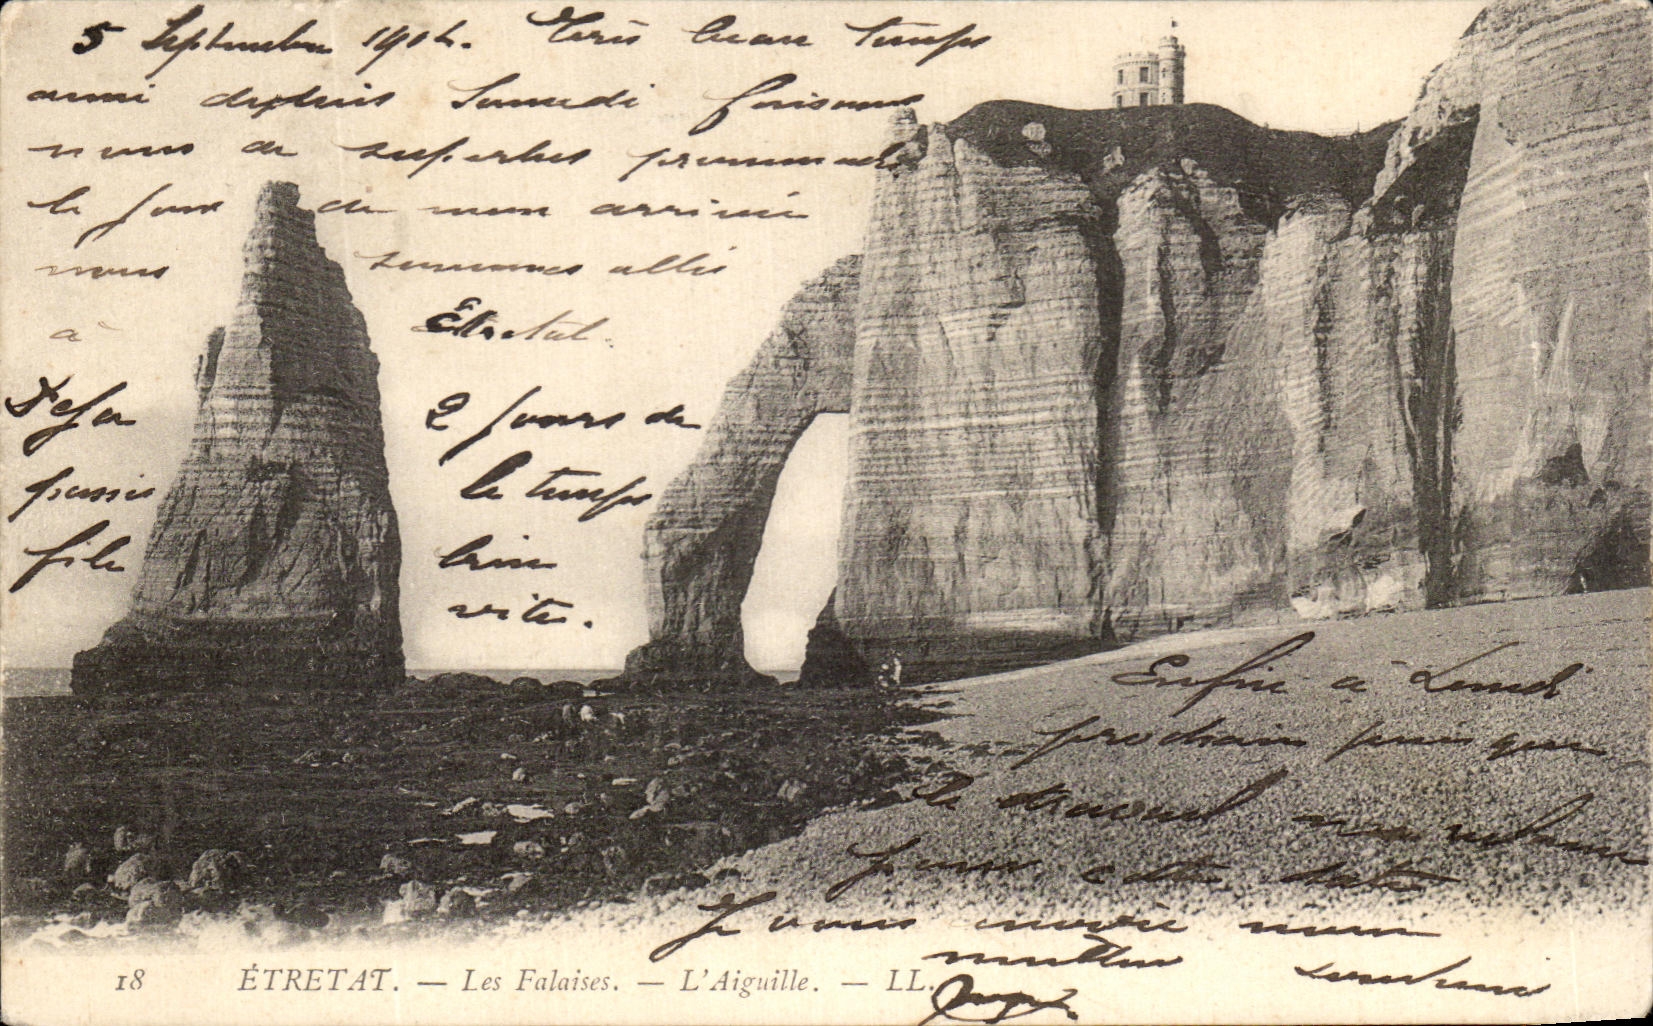 5 Septembre 1904. Très beau temps
aussi depuis Samedi faisons
nous de superbes promenades
le jour de mon arrivée
nous sommes allés
à Étretat.
Déja 2 jours de
passés le temps
file bien
vite.
Enfin à Lundi
prochain puisque
le travail me réclame
pour cette date
Je vous envoie mon
meilleur souvenir
18 ÉTRETAT. — Les Falaises. — L'Aiguille. — LL.